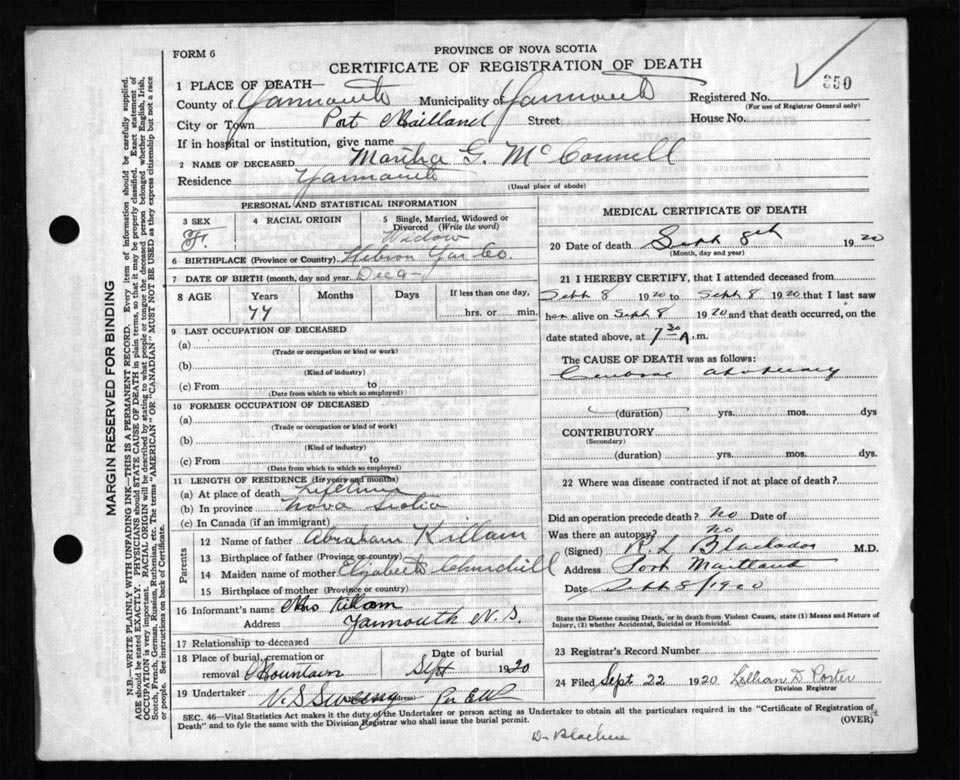 FORM 6
PROVINCE OF NOVA SCOTIA
CERTIFICATE OF REGISTRATION OF DEATH
350
1 PLACE OF DEATH—
County of Yarmouth Municipality of Yarmouth Registered No.
(For use of Registrar General only)
City or Town Port Maitland Street House No.
If in hospital or institution, give name
2 NAME OF DECEASED Martha G. McConnell
Residence Yarmouth
(Usual place of abode)
PERSONAL AND STATISTICAL INFORMATION
3 SEX F. 4 RACIAL ORIGIN 5 Single, Married, Widowed or Divorced (Write the word) Widow
6 BIRTHPLACE (Province or Country) Hebron Yar Co.
7 DATE OF BIRTH (month, day and year) Dec
8 AGE Years 77 Months Days If less than one day, hrs. or min.
9 LAST OCCUPATION OF DECEASED
(a)
(Trade or occupation or kind or work)
(b)
(Kind of industry)
(c) From to
(Date from which to which so employed)
10 FORMER OCCUPATION OF DECEASED
(a)
(Trade or occupation or kind or work)
(b)
(Kind of industry)
(c) From to
(Date from which to which so employed)
11 LENGTH OF RESIDENCE (In years and months)
(a) At place of death Lifetime
(b) In province Nova Scotia
(c) In Canada (if an immigrant)
Parents
12 Name of father Abraham Killam
13 Birthplace of father (Province or country)
14 Maiden name of mother Elizabeth Churchill
15 Birthplace of mother (Province or country)
16 Informant's name Mrs Killam
Address Yarmouth N.S.
17 Relationship to deceased
18 Place of burial, cremation or removal Mountain Date of burial Sept 1920
19 Undertaker V.S. Sweeny Per
MEDICAL CERTIFICATE OF DEATH
20 Date of death Sept 8th 1920
(Month, day and year)
21 I HEREBY CERTIFY, that I attended deceased from
Sept 8 1920 to Sept 8 1920 that I last saw
her alive on Sept 8 1920 and that death occurred, on the
date stated above, at 7 30 A.m.
The CAUSE OF DEATH was as follows:
Cerebral apoplexy
(duration) yrs. mos. dys
CONTRIBUTORY
(Secondary)
(duration) yrs. mos. dys.
22 Where was disease contracted if not at place of death?
Did an operation precede death? No Date of
Was there an autopsy? No
(Signed) R.L. M.D.
Address Port Maitland
Date Sept 8/1920
State the Disease causing Death, or in death from Violent Causes, state (1) Means and Nature of Injury, (2) whether Accidental, Suicidal or Homicidal.
23 Registrar's Record Number
24 Filed Sept 22 1920 Lillian D Porter
Division Registrar
SEC. 46—Vital Statistics Act makes it the duty of the Undertaker or person acting as Undertaker to obtain all the particulars required in the "Certificate of Registration of
Death" and to fyle the same with the Division Registrar who shall issue the burial permit.
(OVER)
MARGIN RESERVED FOR BINDING
N.B.—WRITE PLAINLY WITH UNFADING INK—THIS IS A PERMANENT RECORD. Every item of information should be carefully supplied.
AGE should be stated EXACTLY. PHYSICIANS should STATE CAUSE OF DEATH in plain terms, so that it may be properly classified. Exact statement of
OCCUPATION is very important. RACIAL ORIGIN will be described by stating to what people or tongue the deceased person belonged whether English, Irish,
Scotch, French, German, Russian, Ruthenian, etc. The terms "AMERICAN" OR "CANADIAN" MUST NOT BE USED as they express citizenship but not a race
or people. See instructions on back of Certificate.